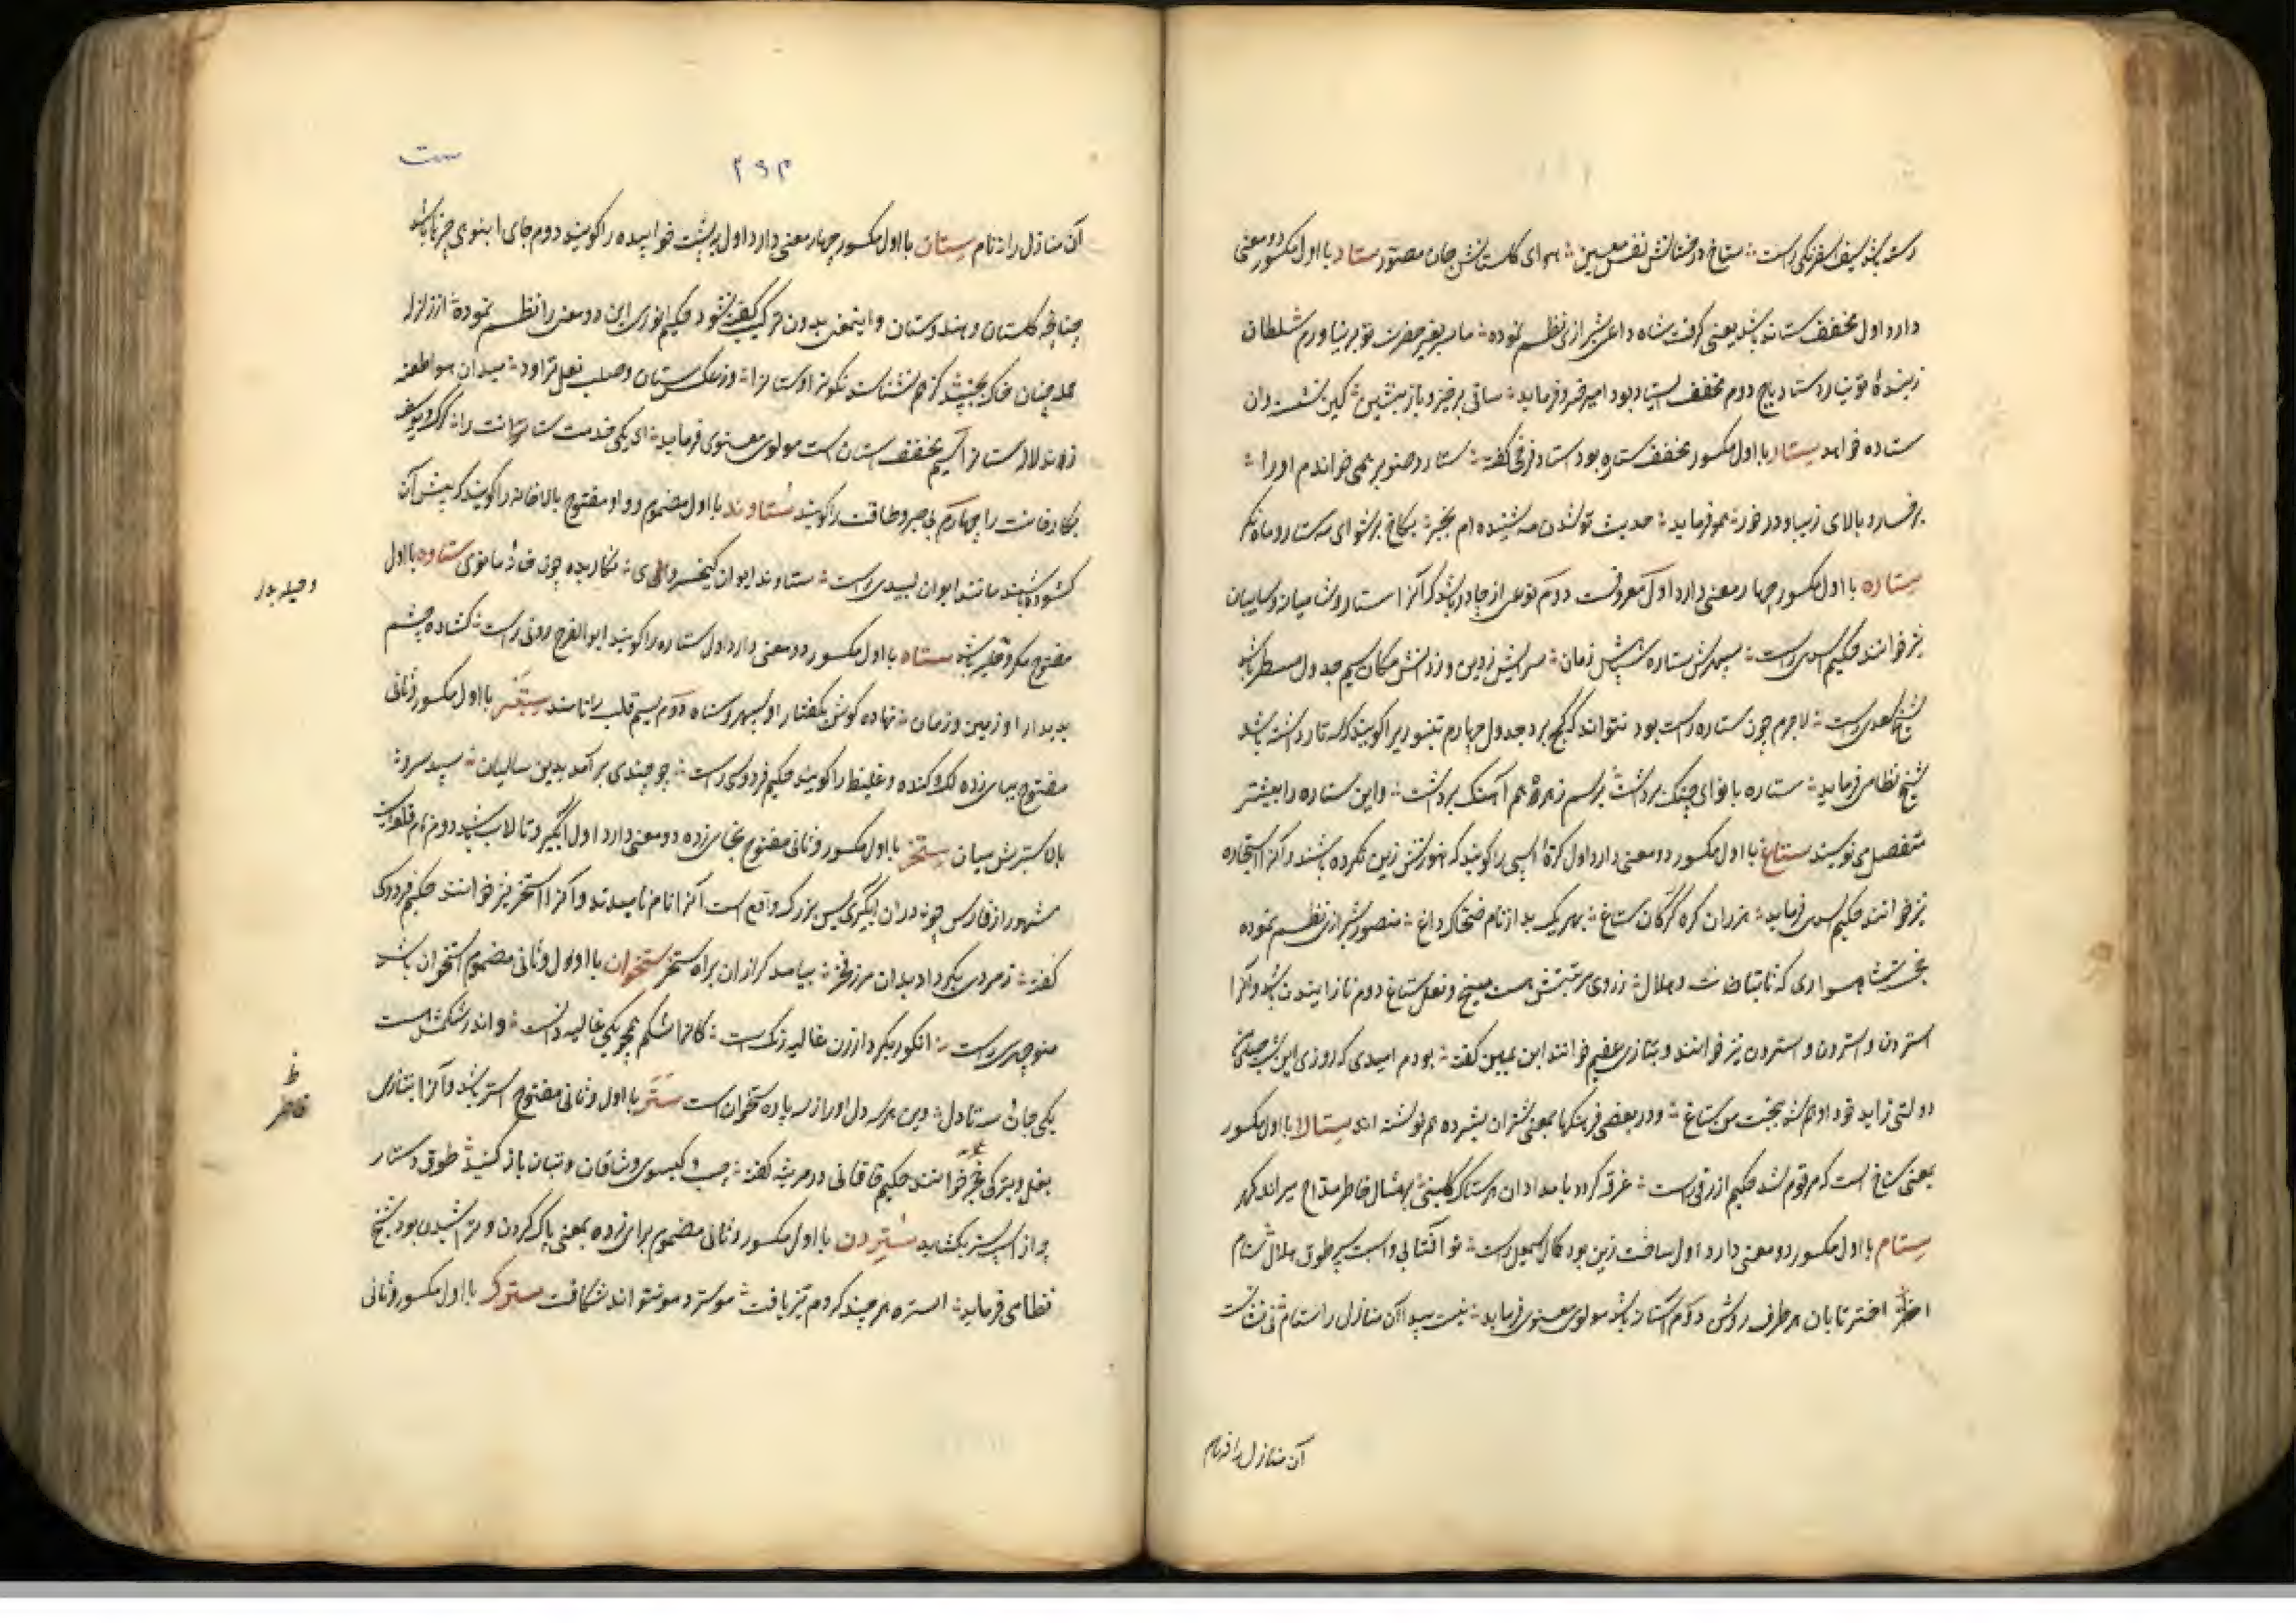 رسته بشد سیف اسفرنکی راست ستاخ درختانش نفس مسیح هوای کلستانش جان مصور ستاد با اول مکسور دو معنی
دارد اول مخفف ستاند باشد یعنی کرفت شاه داعی شیرازی نظم نموده ما بغیر حضرت تو بر نیاوریم سلطان
زبنده تو نیارد ستاد باج دوم مخفف ایستاد بود امیرخسرو فرماید ساقی برخیز و باز بنشین کین
ستاده خواهد ستار با اول مکسور مخفف ستاره بود استاد فرخی کفته ستار و صنوبر همی خواندم او را
برخسار و بالای زیبا و در خور همو فرماید حدیث تو شدن مه شنیده ام بخبر بکاخ بر شو ای مه ستار و ماه نکر
ستاره با اول مکسور چهار معنی دارد اول معروفست دوم نوعی از چادر باشد که آنرا استار و شامیانه و سایبان
نیز خوانند حکیم اسدی راست سپهرش ستاره شب پلش زمان سرایش زمین و زدانش مکان سیم جدول مسطر باشد
شیخ سعدی راست لاجرم چون ستاره راست بود نتواند که کج برد جدول چهارم تنبوریرا کویند که سه تار داشته باشد
شیخ نظامی فرماید ستاره با نوای چنک برداشت برسم زهره هم آهنک برداشت و این ستاره را بیشتر
منفصل می نویسند ستاغ با اول مکسور دو معنی دارد اول کره اسپی را کویند که هنوزش زین نکرده باشند و آنرا استاغ
نیز خوانند حکیم اسدی فرماید هزاران کره کرکان ستاغ بهر یک بد از نام ضحاک داغ منصور شیرازی نظم نموده
خجسته سواری که تابتافت هلال ز روی مرتبتش هست میخ و نعل ستاغ دوم نازاینده باشد و آنرا
استردن و استرون و ستردن نیز خوانند و بتازی عقیم خوانند ابن یمین کفته بودم امیدی که روزی این شب حبلی
دولتی زاید خود او هم شد ببخت من ستاغ و در بعضی فرهنکها بمعنی شتران شیرده هم نوشته اند ستالا با اول مکسور
بمعنی ستاخ است که مرقوم شد حکیم ازرقی راست غرقه کردد بامدادان هر ستاک کلبنی بر مثال خاطر مداح میر اندر کهر
ستام با اول مکسور دو معنی دارد اول ساخت زین بود کمال اسمعیل راست تو آفتابی و اسبت سپهر طوق هلال ستام
اختر تابان هر طرف روش دوم آستان باشد مولوی معنوی فرماید نیست پیدا آن منازل را ستام نی نشانست
آن منازل را نه نام
ست
۲۹۳
آن منازل را نه نام ستان با اول مکسور چهار معنی دارد اول بر پشت خوابیده را کویند دوم جای انبوهی چیزها باشد
چنانچه کلستان و هندوستان و اینمعنی بدون ترکیب کفته نشود حکیم انوری این دو معنی را نظم نموده از زلزله
حمله چنان خاک بجنبد کز هم نشناسند نکون را و ستان را وز عکس سنان و صلب نعل تراود میدان هوا طعنه
زند لاله ستان را سیم مخفف استان است مولوی معنوی فرماید ای یکی خدمت ستانت را
بکار خانت را چهارم بی صبر و طاقت را کویند ستاوند با اول مضموم و واو مفتوح بالاخانه را کویند که پیش آن
کشوده باشند مانند ایوان لبیبی راست ستاوند ایوان کیخسروی نکاریده چون خانه مانوی ستاوه با اول
مفتوح مکر و حیله باشد ستاه با اول مکسور دو معنی دارد اول ستاره را کویند ابوالفرج رونی راست کشاده چشم
بدیدار او زمین و زمان نهاده کوش بکفتار او سپهر و ستاه دوم سیم قلب را نامند ستبر با اول مکسور و ثانی
مفتوح ببای زده لک و کنده و غلیظ را کویند حکیم فردوسی راست چو چندی بر آمد بدین سالیان سپید سرو
بالا سترش میان ستخر با اول مکسور و ثانی مفتوح بخای زده دو معنی دارد اول آبکیر و تالاب باشد دوم نام قلعه ایست
مشهور از فارس چون در آن آبکیری بس بزرک واقع است آنرا نام نامیدند و آنرا استخر نیز خوانند حکیم فردوسی
کفته ز مردی بکرد او بدان مرز فخر بیامد کرازان براه ستخر ستخوان با اول و ثانی مضموم استخوان باشد
منوچهری راست انکور بکردار زن غالیه رنک است کانرا شکم همچو یکی غالیه دانست و اندر شکمش هست
یکی جان و سه تا دل وین هر سه دل او را ز سه پاره ستخوان است ستر با اول و ثانی مفتوح استر باشد و آنرا بتازی
بغل و بترکی قاطر خوانند حکیم خاقانی در مرثیه کفته جیب و کیسوی وشاقان و بتان باز کنید طوق و دستار
چه از اسب و ستر بکشاید ستردن با اول مکسور و ثانی مضموم برای زده بمعنی پاک کردن و تراشیدن بود شیخ
نظامی فرماید استره هر چند کردم تیز یافت موسترد مو نتواند شکافت سترک با اول مکسور و ثانی
و حیله بود
ظ
قاطر